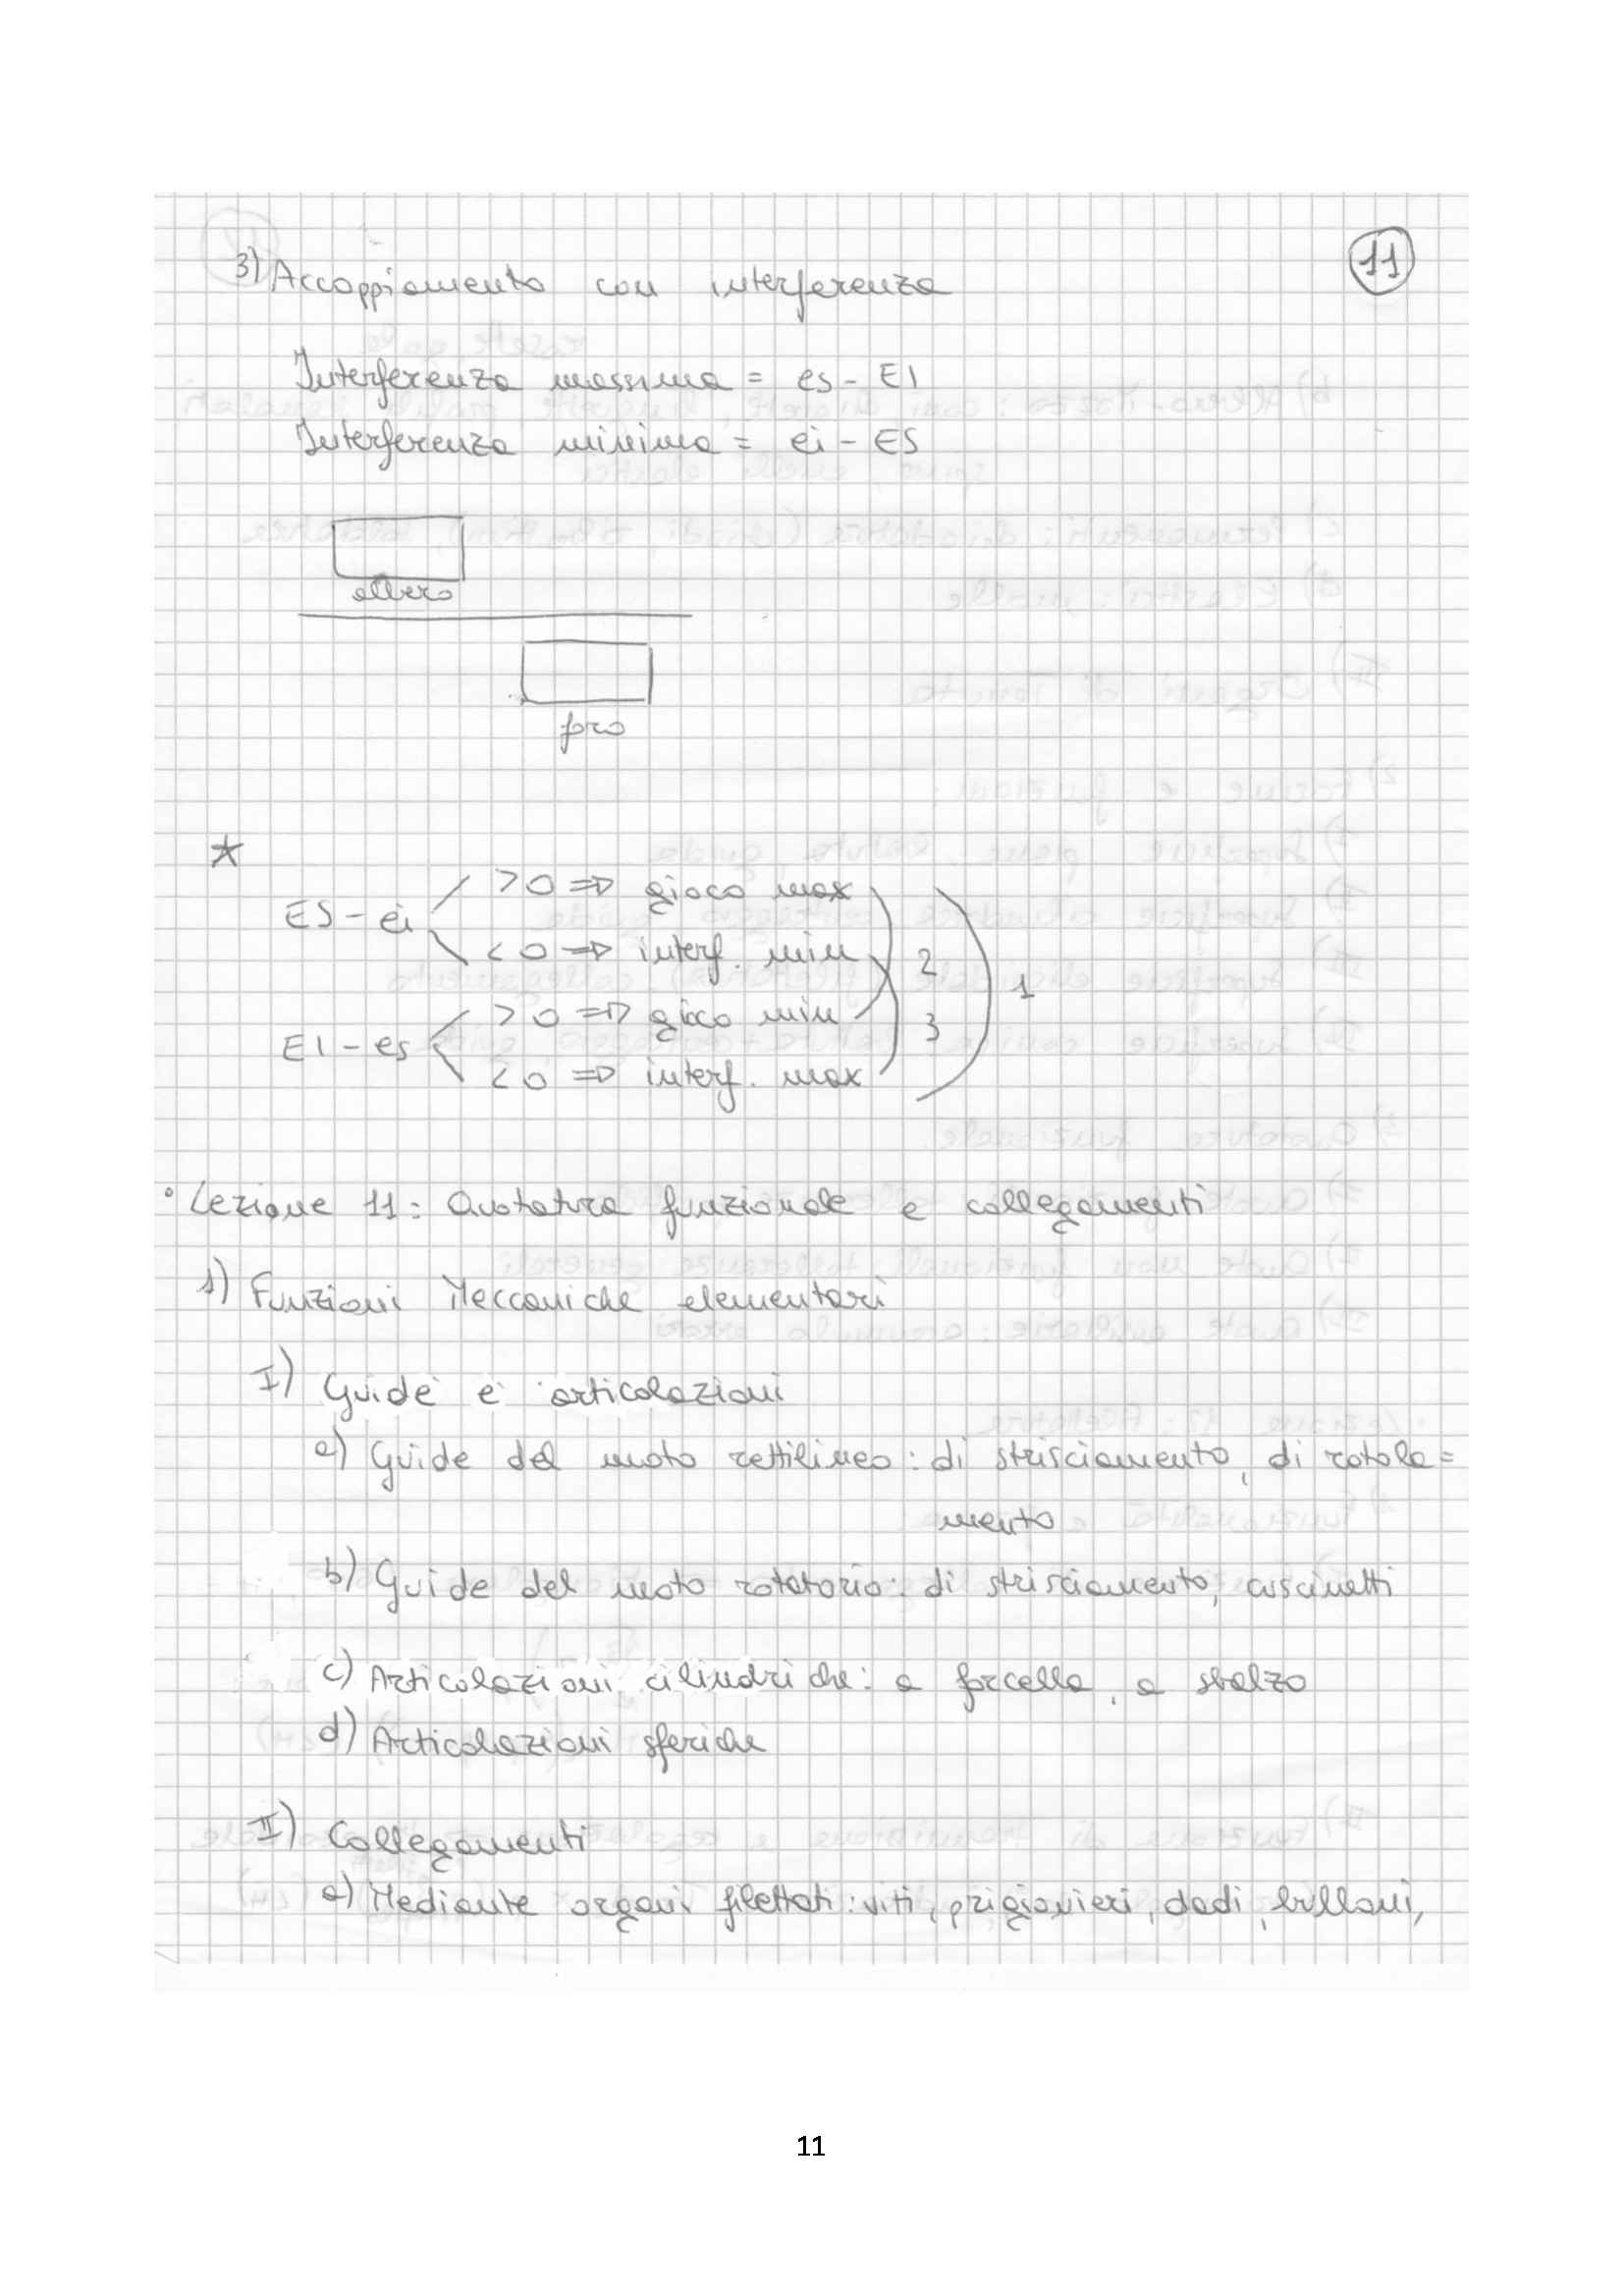 11
3) Accoppiamento con interferenza
Interferenza massima = es - EI
Interferenza minima = ei - ES
albero
foro
*
ES - ei
>0 => gioco max
<0 => interf. min
EI - es
>0 => gioco min
<0 => interf. max
2
3
1
• Lezione 11: Quotatura funzionale e collegamenti
1) Funzioni Meccaniche elementari
I) Guide e articolazioni
a) Guide del moto rettilineo: di strisciamento, di rotola=
mento
b) Guide del moto rotatorio: di strisciamento, cuscinetti
c) Articolazioni cilindriche: a forcella, a sbalzo
d) Articolazioni sferiche
II) Collegamenti
a) Mediante organi filettati: viti, prigionieri, dadi, bulloni,
11